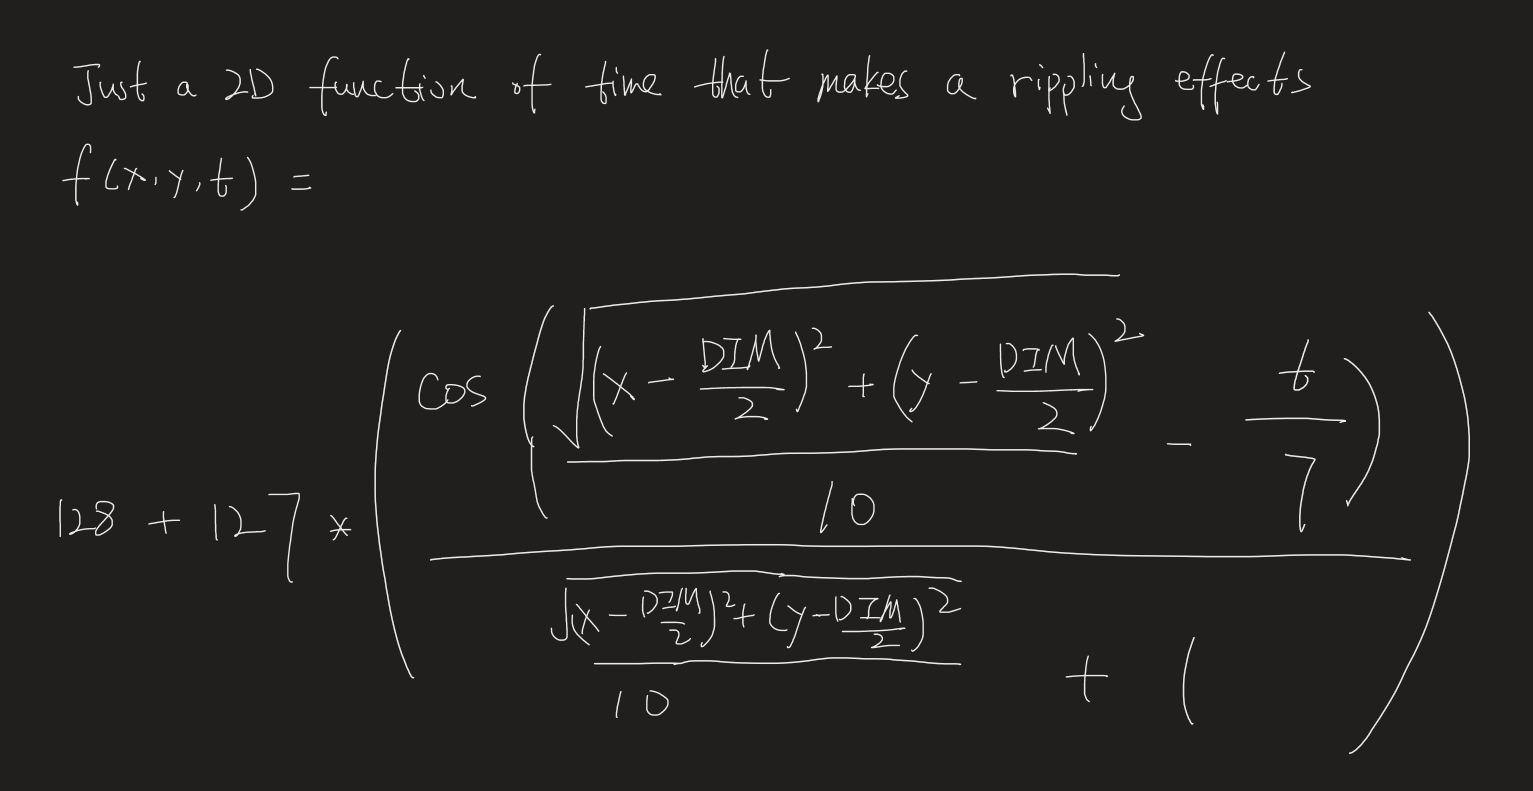 Just a 2D function of time that makes a rippling effects
f(x,y,t) =
128 + 127 * ( cos ( √((x - DIM/2)² + (y - DIM/2)²) / 10 - t/7 ) / ( √((x - DIM/2)² + (y - DIM/2)²) / 10 + ( )